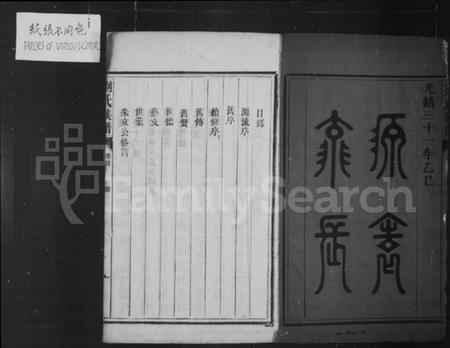 紙張不同色
PAPERS OF VARIOUS COLOR
光緒三十一年乙巳
源遠
流長
目錄
源流序
舊序
續修序
舊傳
舊贊
世德
藝文
世系
朱文公格言
氏族譜
FamilySearch